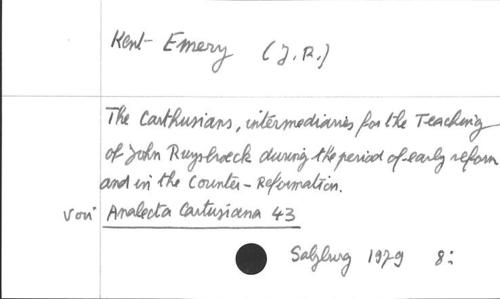 Kent-Emery (J.R.)
The Carthusians, intermediaries for the Teaching
of John Ruysbroeck during the period of early reform
and in the Counter-Reformation.
voir Analecta Cartusiana 43
Salzburg 1979 8: